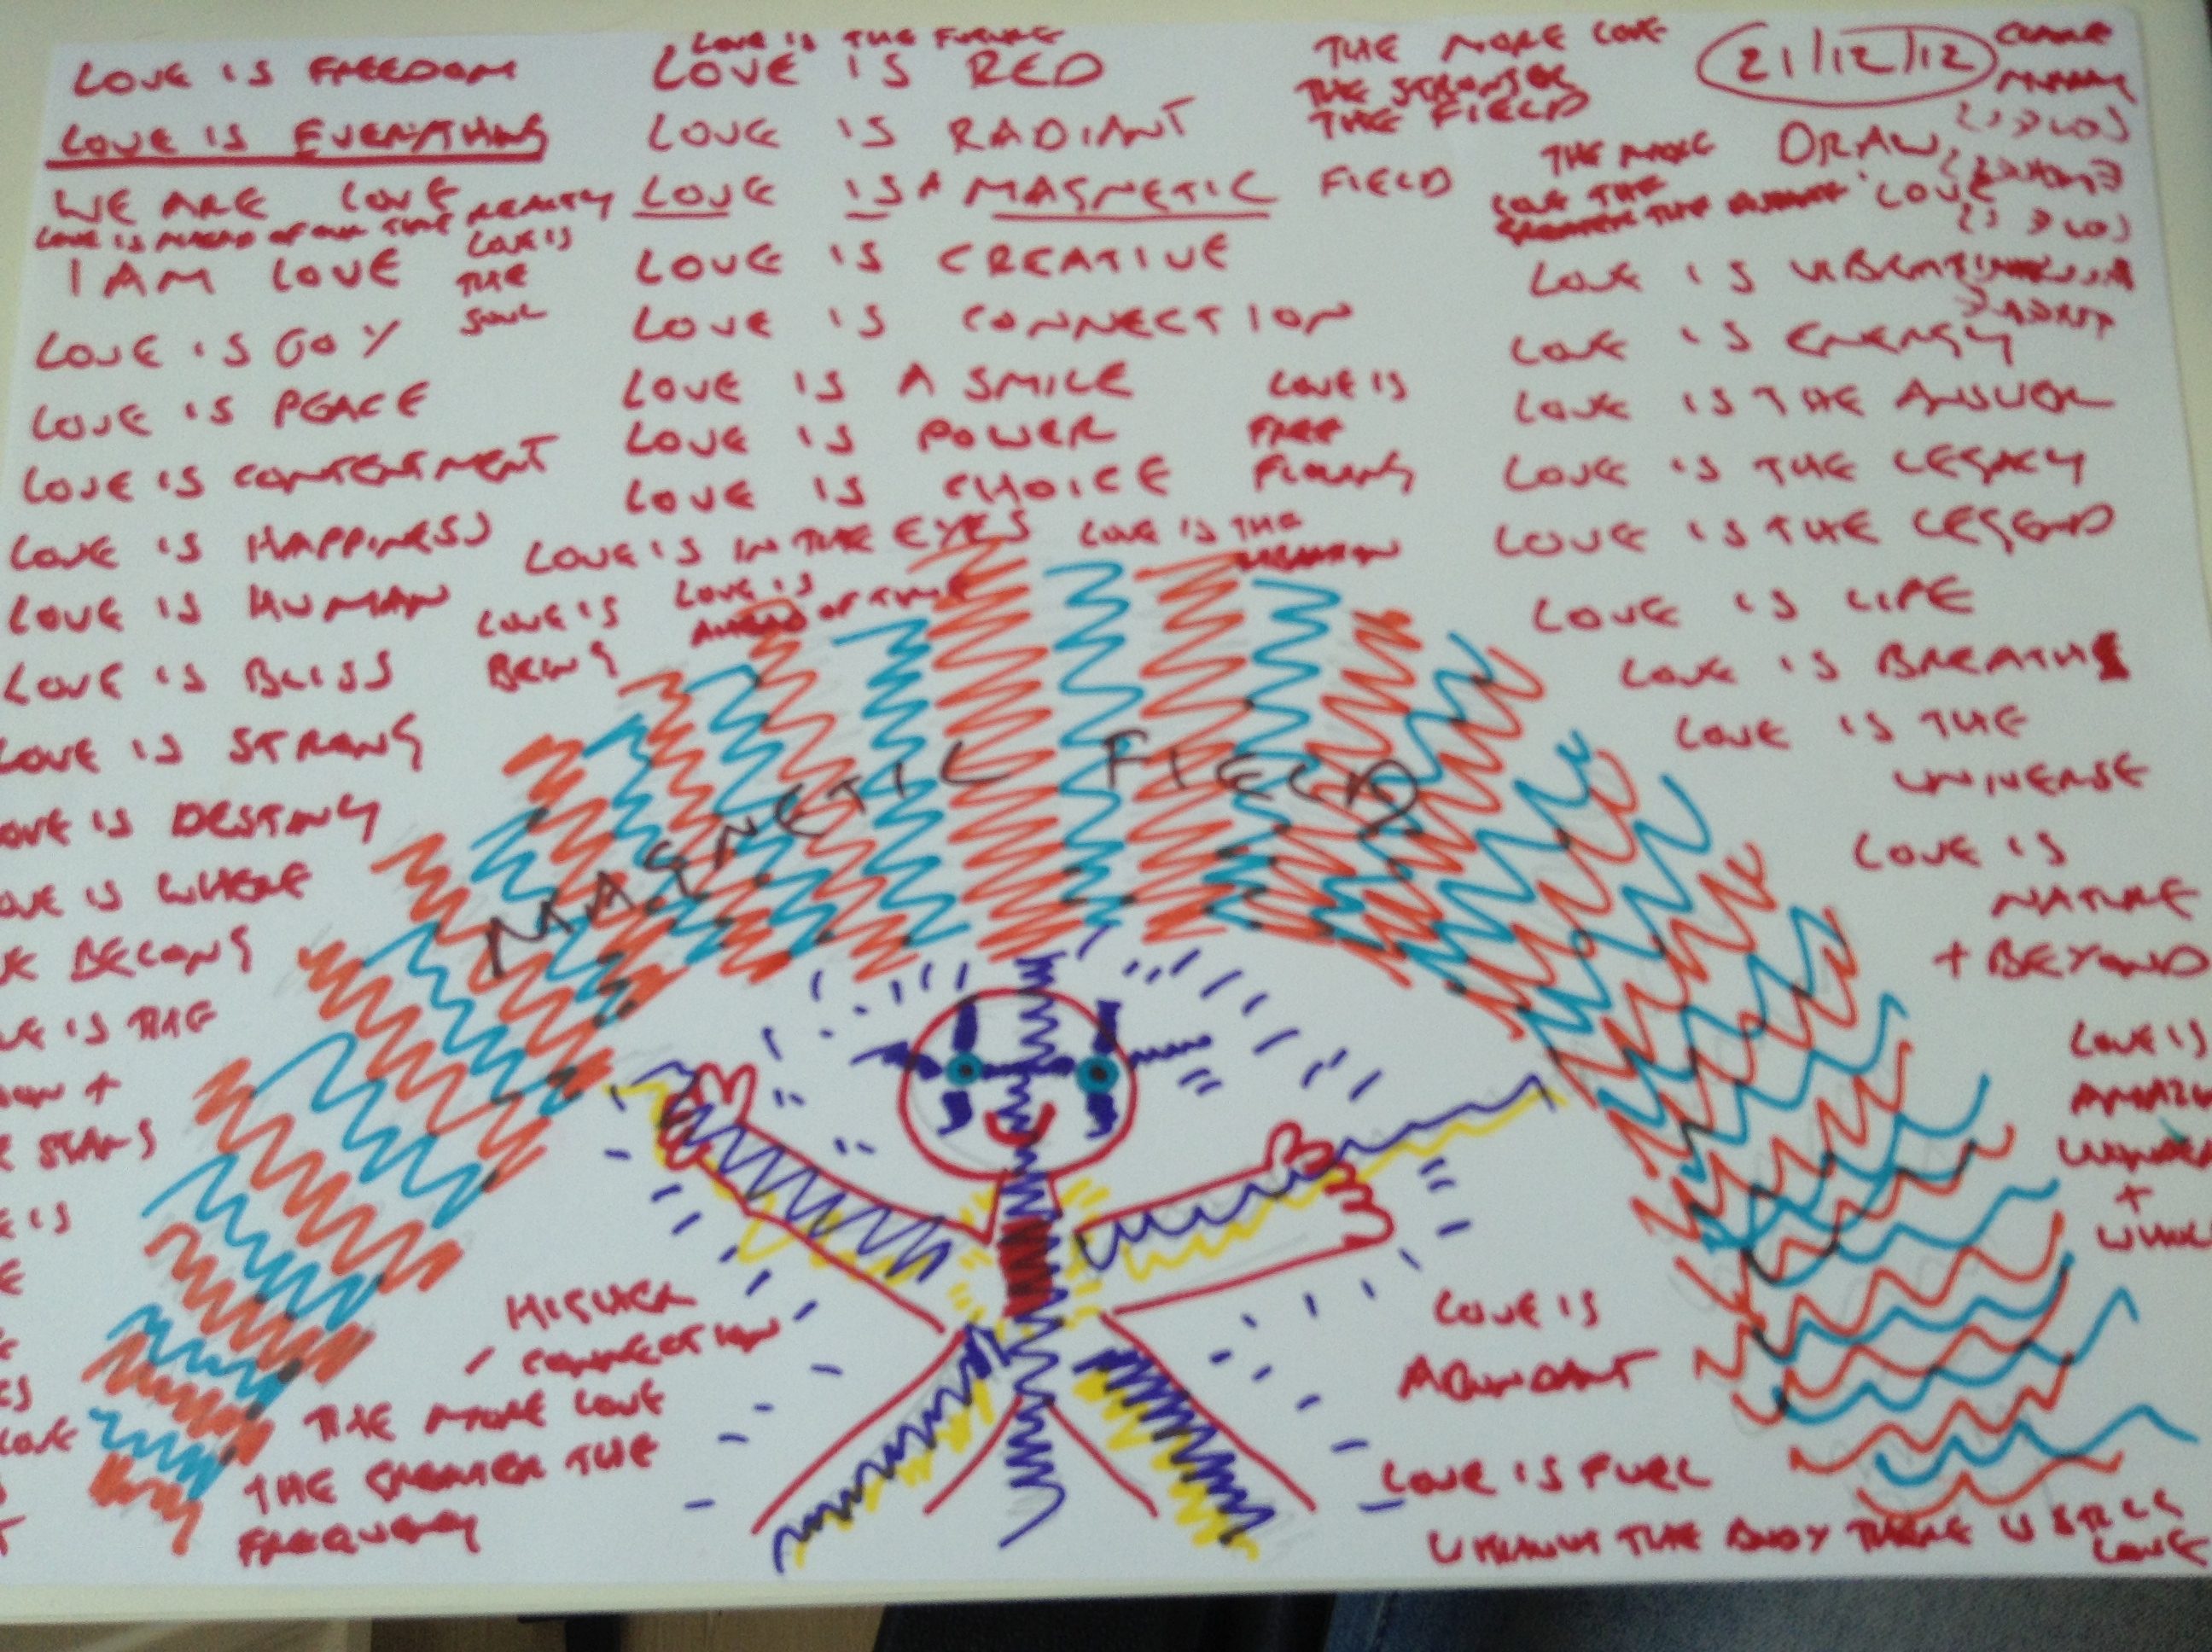 LOVE IS FREEDOM
LOVE IS EVERYTHING
WE ARE LOVE
LOVE IS AHEAD OF OUR TIME REALITY
I AM LOVE
LOVE IS
THE
SOUL
LOVE IS GOY
LOVE IS PEACE
LOVE IS CONTENTMENT
LOVE IS HAPPINESS
LOVE IS HUMAN
LOVE IS BLISS
LOVE IS
BEING
LOVE IS STRONG
OVE IS DESTINY
OVE IS WHERE
E BELONG
E IS THE
+
STARS
E IS
LOVE
HIGHER
CONNECTION
THE MORE LOVE
THE GREATER THE
FREQUENCY
LOVE IS THE FUTURE
LOVE IS RED
LOVE IS RADIANT
LOVE IS A MAGNETIC FIELD
LOVE IS CREATIVE
LOVE IS CONNECTION
LOVE IS A SMILE
LOVE IS POWER
LOVE IS CHOICE
LOVE IS
FREE
FLOWING
LOVE IS IN THE EYES
LOVE IS THE
LOVE IS
AHEAD OF TIME
MAGNETIC FIELD
THE MORE LOVE
THE STRONGER
THE FIELD
21/12/12
THE MORE
LOVE THE
DRAW
LOVE
LOVE IS
LOVE IS ENERGY
LOVE IS THE ANSWER
LOVE IS THE LEGACY
LOVE IS THE LEGEND
LOVE IS LIFE
LOVE IS BREATH
LOVE IS THE
UNIVERSE
LOVE IS
NATURE
+ BEYOND
LOVE IS
AMAZ
WONDE
+
LOVE IS
ABUNDANT
LOVE IS FUEL
WITHOUT THE BODY THERE IS STILL
LOVE